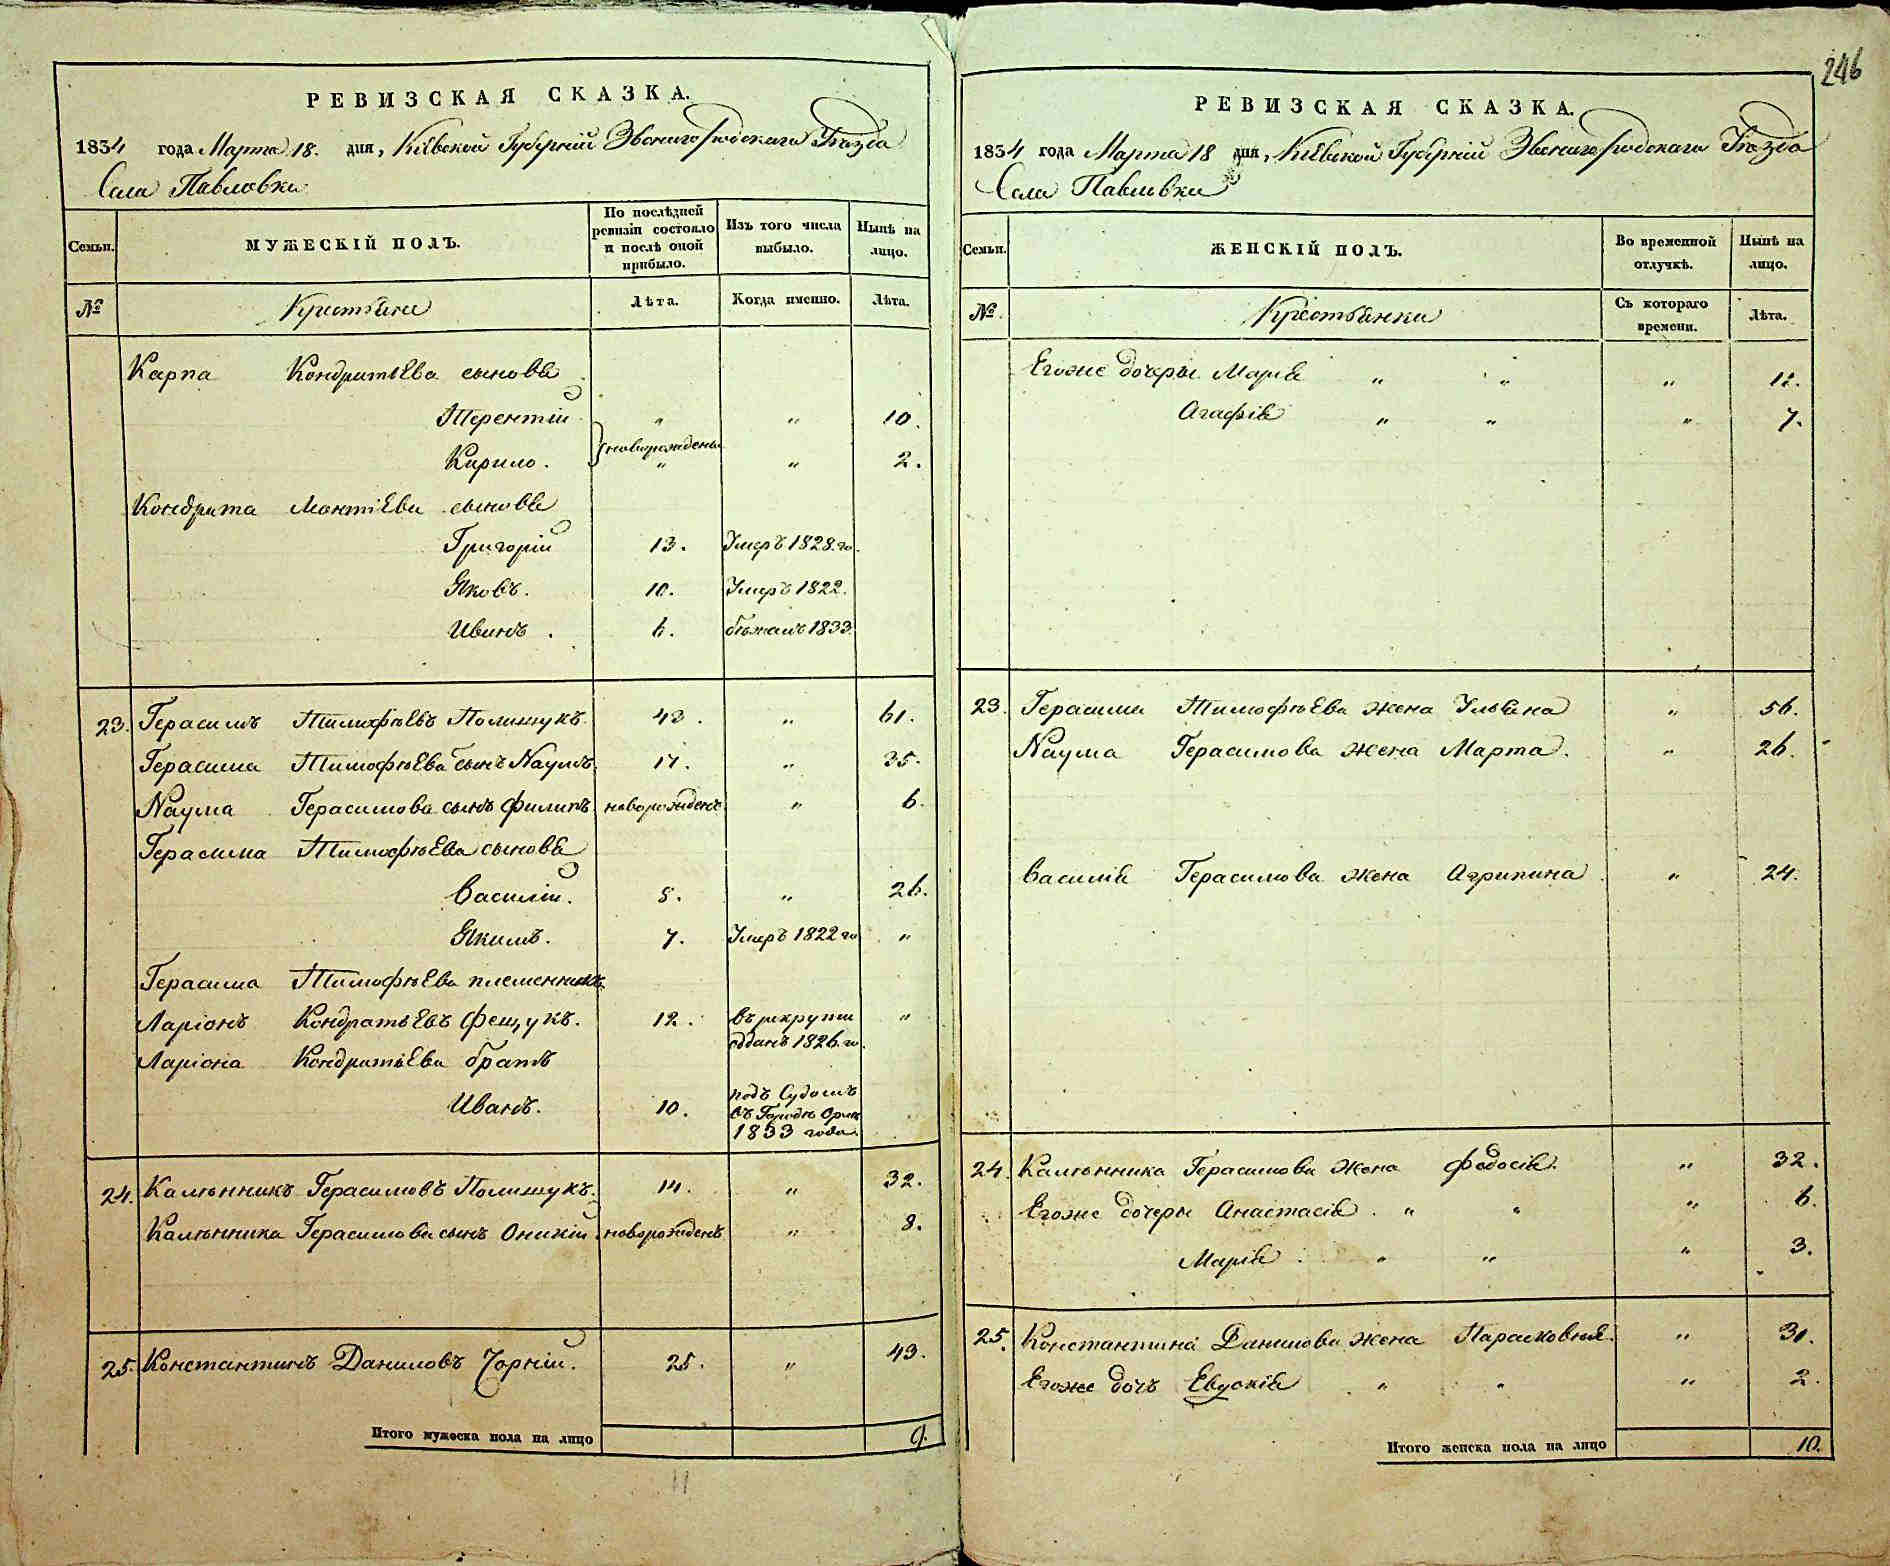 246
РЕВИЗСКАЯ СКАЗКА.
1834 года Марта 18. дня, Кіевской Губерніи Звенигородскаго Уѣзда
Села Павловки
Семьи.
МУЖЕСКІЙ ПОЛЪ.
По послѣдней ревизіи состояло и послѣ оной прибыло.
Изъ того числа выбыло.
Нынѣ на лицо.
№
Крестьяне
Лѣта.
Когда именно.
Лѣта.
Карпа Кондратьева сыновья
Терентій " " 10.
новорождены
Кирило. " " 2.
Кондрата Леонтіева сыновья
Григорій 13. Умеръ 1828.го.
Яковъ. 10. Умеръ 1822.
Иванъ. 6. бѣжалъ 1833.
23. Герасимъ Тимофѣевъ Полищукъ. 43. " 61.
Герасима Тимофѣева сынъ Наумъ. 17. " 35.
Наума Герасимова сынъ Филипъ. новорожденъ " 6.
Герасима Тимофѣева сыновья
Василій. 8. " 26.
Якимъ. 7. Умеръ 1822 го "
Герасима Тимофѣева племенникъ
Ларіонъ Кондратьевъ Фещукъ. 12. въ рекруты "
отданъ 1826.го.
Ларіона Кондратьева братъ
Иванъ. 10. подъ Судомъ
въ Городѣ
1833 года.
24. Калѣнникъ Герасимовъ Полищукъ. 14. " 32.
Калѣнника Герасимова сынъ Оникій. новорожденъ " 8.
25. Константинъ Даниловъ Чорній. 25. " 43.
Итого мужеска пола на лицо 9.
11
РЕВИЗСКАЯ СКАЗКА.
1834 года Марта 18 дня, Кіевской Губерніи Звенигородскаго Уѣзда
Села Павловки
Семьи.
ЖЕНСКІЙ ПОЛЪ.
Во временной отлучкѣ.
Нынѣ на лицо.
№.
Крестьянки
Съ котораго времени.
Лѣта.
Егоже дочеры Марія " " " 12.
Агафія " " " 7.
23. Герасима Тимофѣева жена Ульяна " 56.
Наума Герасимова жена Марта. " 26.
Василія Герасимова жена Агрипина. " 24.
24. Калѣнника Герасимова жена Федосія. " 32.
Егоже дочеры Анастасія. " " " 6.
Марія. " " " 3.
25. Константина Данилова жена Парасковья. " 30.
Егоже дочъ Евдокія " " " 2.
Итого женска пола на лицо 10.